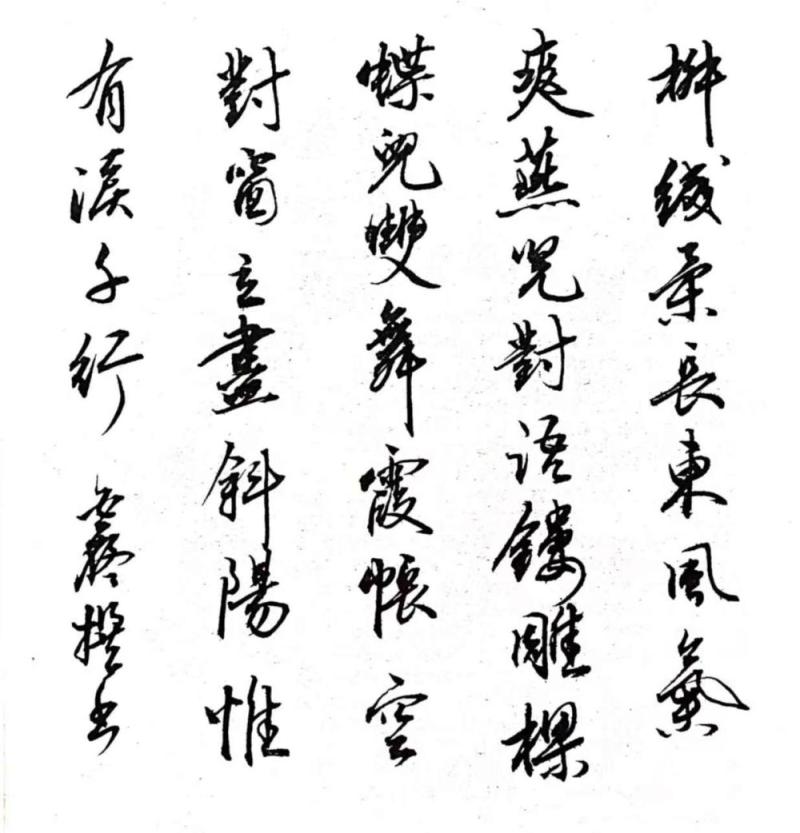 柳綫柔長東風氣
爽燕兒對語鏤雕樑
蝶兒雙舞霞帳空
對窗立盡斜陽惟
有淚千行 書